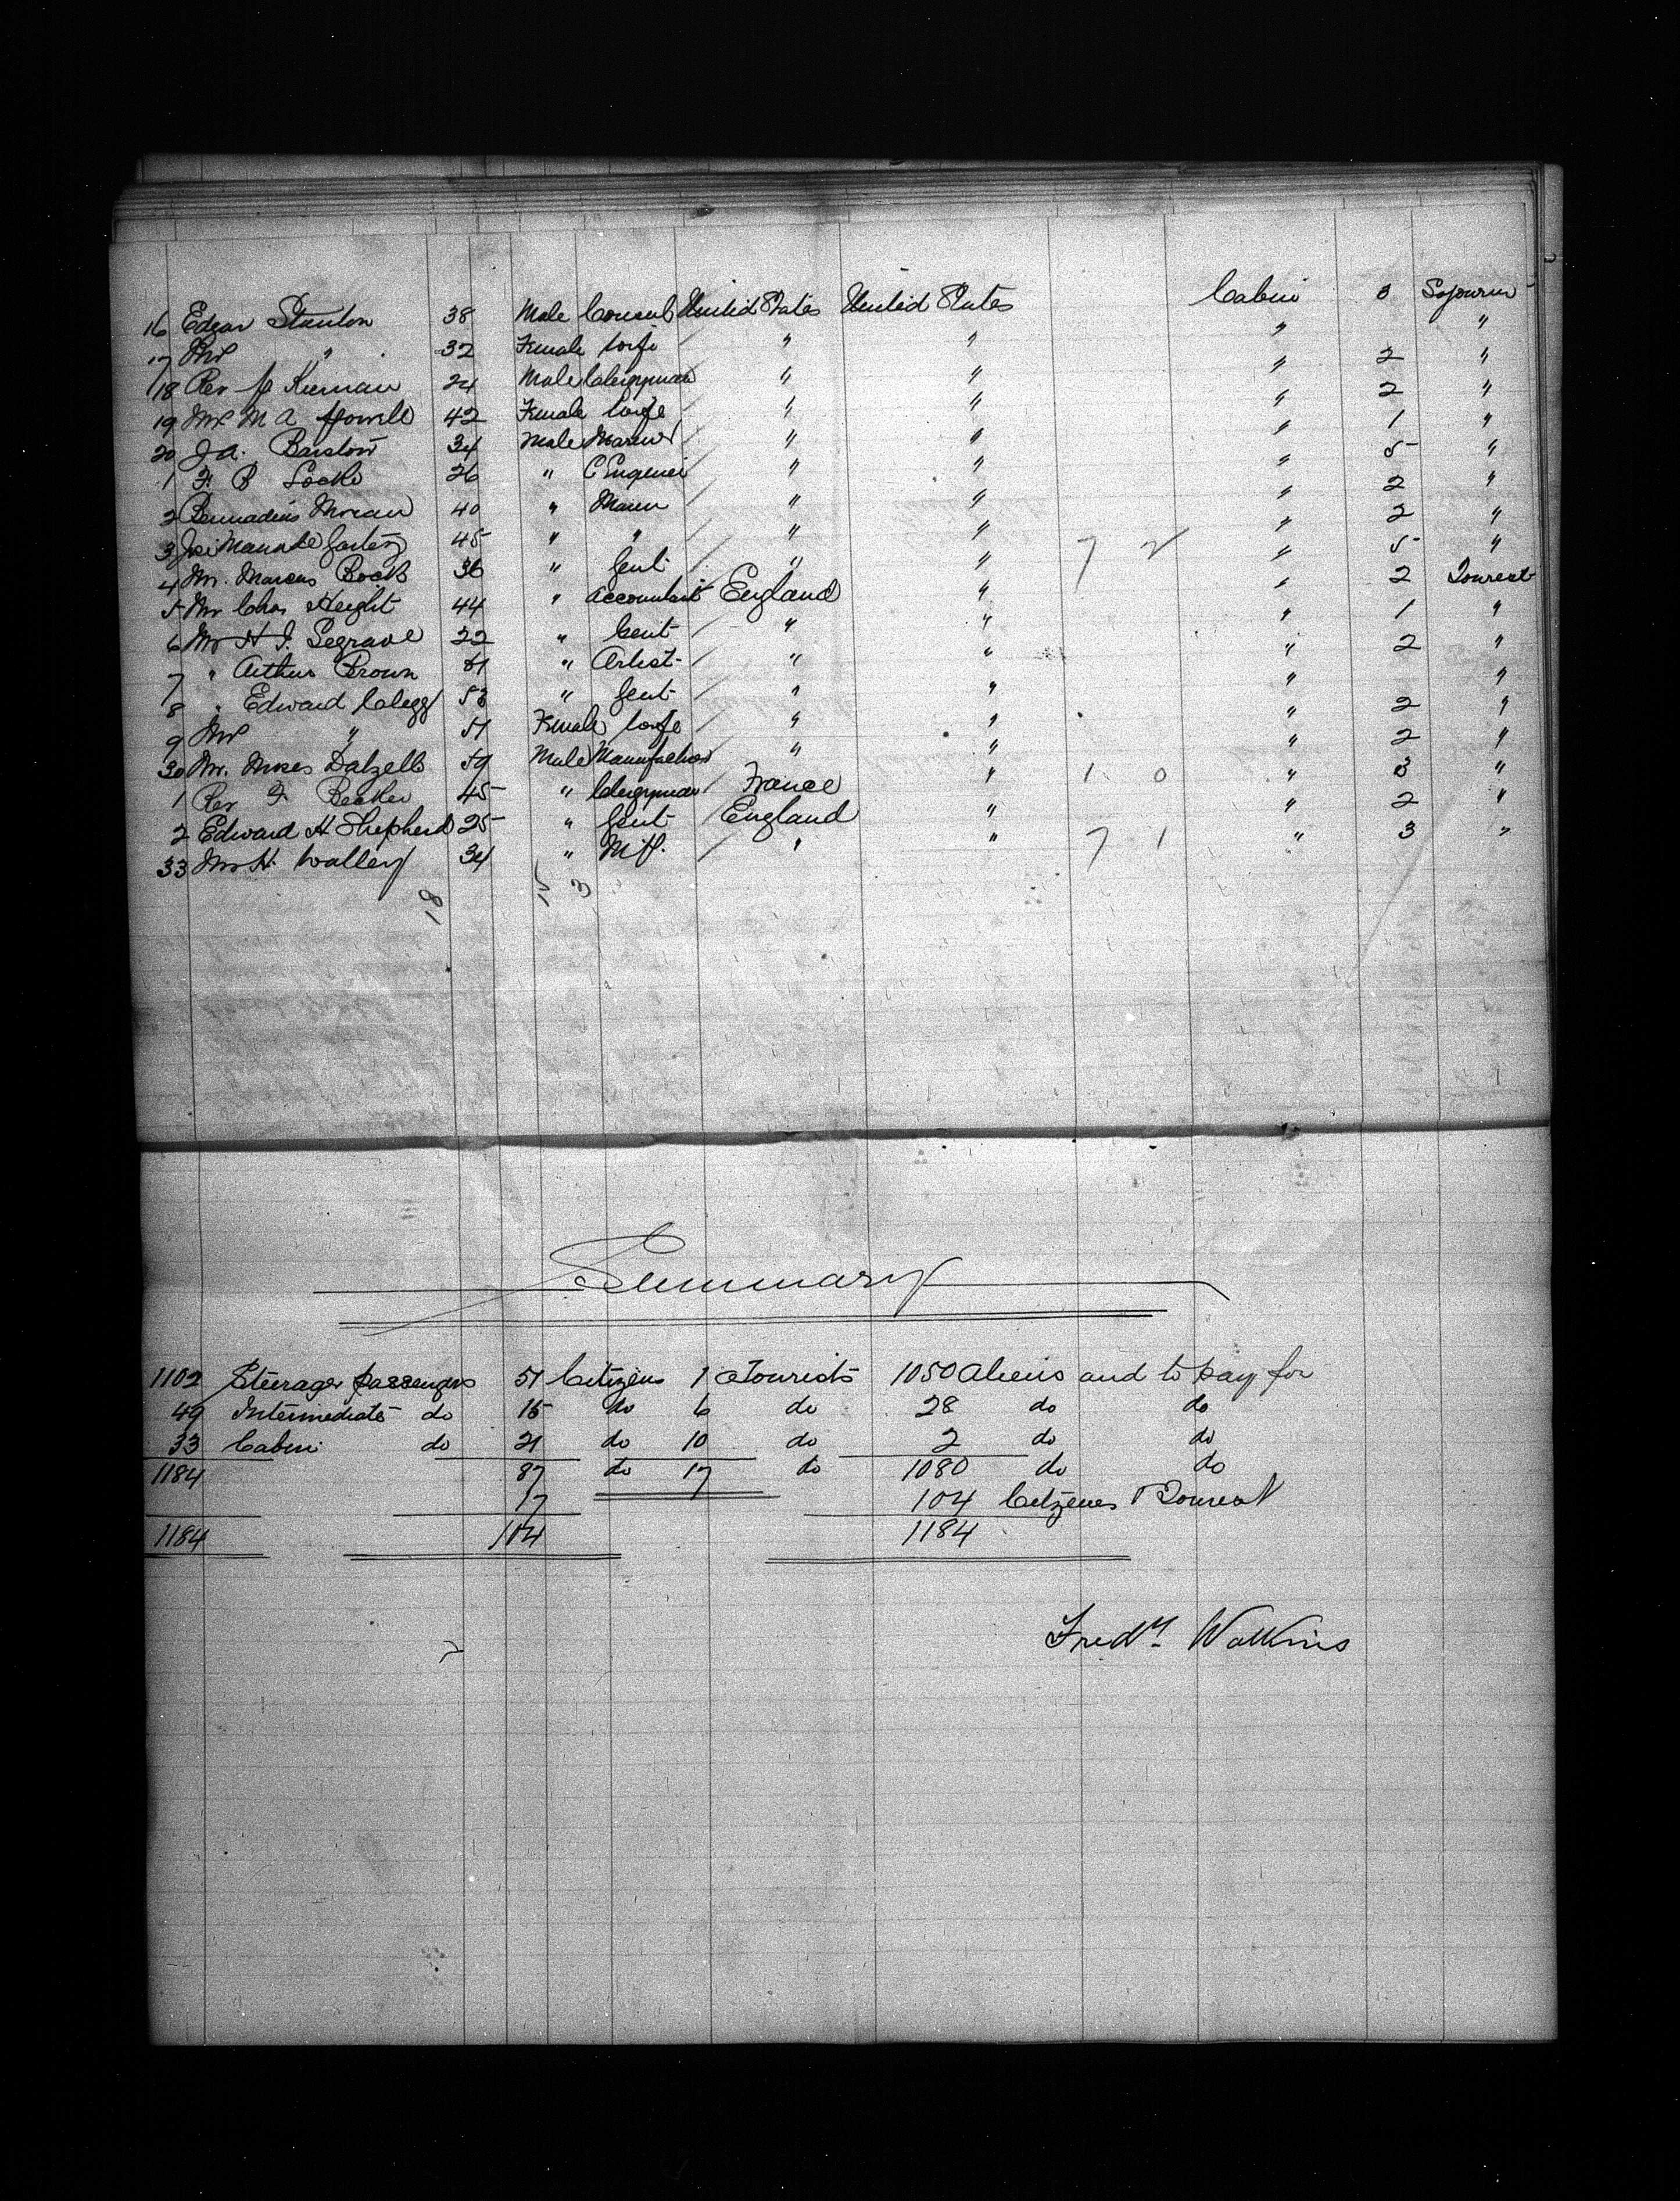 16 Edgar Stanton 38 Male Consul United States United States Cabin 3 Sojourn
17 Mrs " 32 Female Wife " " " "
18 Rev J Kiernan 24 Male Clergyman " " " 2 "
19 Mrs M A Howell 42 Female Wife " " " 2 "
20 J A. Barstow 34 Male Mariner " " " 1 "
1 F. B Locke 26 " C Engineer " " " 5 "
2 Bernadins Moran 40 " Marin " " " 2 "
3 45 " " " " " 2 "
4 Mr. Marcus Bock 36 " Gent " " 7 2 " 5 "
5 Mr Chas Height 44 " Accountant England " " 2 Tourest
6 Mr H. J. Segrave 22 " Gent " " " 1 "
7 " Arthur Brown " Artist " " " 2 "
8 " Edward Clegg 53 " Gent " " " "
9 Mrs " 51 Female Wife " " " 2 "
30 Mr. Moses Dalzell 59 Male Manufacturer " " " 2 "
1 Rev F Becker 45 " Clergyman France " 1 0 " 3 "
2 Edward H Shepherd 25 " Gent England " " 2 "
33 Mr H. Walley 34 " " " 7 1 " 3 "
18 15 3
Summary
1102 Steerage passengers 51 Citizens 1 Tourists 1050 Aliens and to pay for
49 Intermediate do 15 do 6 do 28 do do
33 Cabin do 21 do 10 do 2 do do
1184 87 do 17 do 1080 do do
17 104 Citizens Tourest
1184 104 1184
Fredk. Watkins